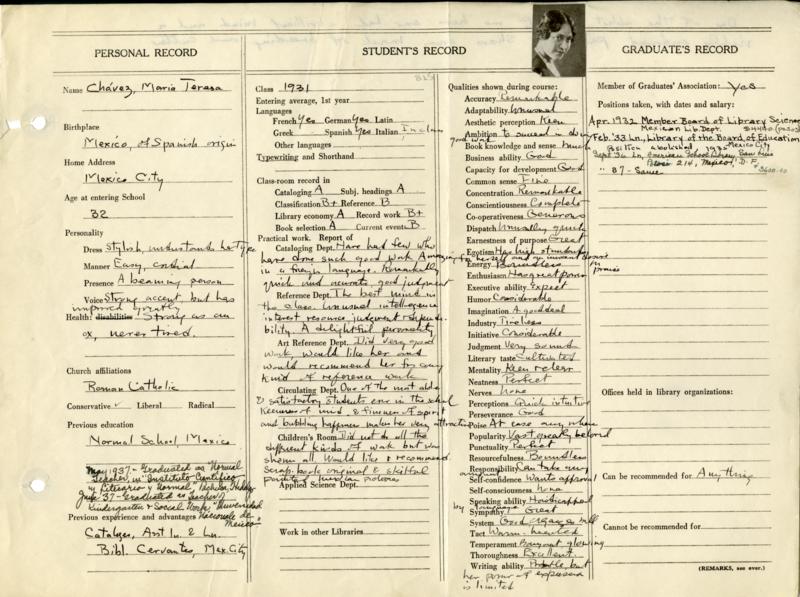 PERSONAL RECORD
Name Chávez, Maria Teresa
Birthplace
Mexico, of Spanish origin
Home Address
Mexico City
Age at entering School
32
Personality
Dress Stylish, understands her type
Manner Easy, cordial
Presence A beaming person
Voice Strong accent, but has
improved greatly
Health: disabilities Strong as an
ox, never tired.
Church affiliations
Roman Catholic
Conservative ✓ Liberal Radical
Previous education
Normal School, Mexico
May 1937 - Graduated as "Normal
Teacher" in "Instituto Cientifico
y Literario y Normal,"
June '37 - Graduated as Teacher of
Kindergarten & Social Work, "Universidad
Nacionale de
Mexico"
Previous experience and advantages
Cataloger, Asst. Ln. & Ln.
Bibl. Cervantes, Mex. City
STUDENT'S RECORD
Class 1931
Entering average, 1st year
Languages
French Yes German Yes Latin
Greek Spanish Yes Italian
Other languages
Typewriting and Shorthand
Class-room record in
Cataloging A Subj. headings A
Classification B+ Reference B
Library economy A Record work B+
Book selection A Current events B
Practical work. Report of
Cataloging Dept. Have had few who
have done such good work
in a foreign language. Remarkably
quick and accurate, good judgment
Reference Dept. The best mind in
the class. Unusual intelligence
interest resource, judgment
bility. A delightful personality
Art Reference Dept. Did very good
work, would like her and
would recommend her for any
kind of reference work
Circulating Dept. One of the most able
& satisfactory students ever in the school
Keenness of mind & fineness of spirit
and bubbling happiness makes her very attractive
Children's Room Did not do all the
different kinds of work but was
shown all. Would like & recommend
Scrap book original & skilful
Applied Science Dept.
Work in other Libraries
Qualities shown during course:
Accuracy Remarkable
Adaptability Unusual
Aesthetic perception Keen
Ambition To succeed in doing
good work
Book knowledge and sense Much
Business ability Good
Capacity for development Good
Common sense Fine
Concentration Remarkable
Conscientiousness Complete
Co-operativeness Generous
Dispatch Unusually quick
Earnestness of purpose Great
Egotism Has high standards
for herself and an innocent
in praise
Energy Boundless
Enthusiasm Has great powers
Executive ability Expect
Humor Considerable
Imagination A good deal
Industry Tireless
Initiative Considerable
Judgment Very sound
Literary taste Cultivated
Mentality Keen & clear
Neatness Perfect
Nerves None
Perceptions Quick intuitive
Perseverance Good
Poise At ease anywhere
Popularity Vast greatly beloved
Punctuality Perfect
Resourcefulness Boundless
Responsibility Can take any
amount
Self-confidence Wants approval
Self-consciousness None
Speaking ability Handicapped
by language
Sympathy Great
System Good
Tact Warm-hearted
Temperament Buoyant glowing
Thoroughness Excellent
Writing ability but
her power of expression
is limited
GRADUATE'S RECORD
Member of Graduates' Association: Yes
Positions taken, with dates and salary:
Apr. 1932 Member Board of Library Science
Mexican Lib. Dept.
Feb. '33 Ln., Library of the Board of Education
Position abolished, 1935 Mexico City
Sept. '36 Ln, American School Library, San Luis
Potosi 214, Mexico, D.F.
" 37 - Same
Offices held in library organizations:
Can be recommended for Anything
Cannot be recommended for
(REMARKS, see over.)